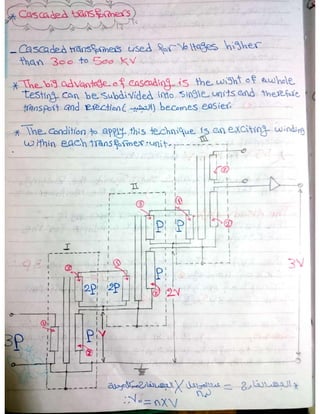 * Cascaded transformers)
- Cascaded transformers used for Voltages higher
than 300 to 500 KV
* The big advantage of cascading is the wight of a whole
testing can be subdivided into single units and therefore
transport and erection ( ) becomes easier.
* The condition to apply this technique is an exciting winding
within each transformer unit.
III
II
I
P P
P
2P 2P
P
3P
V
2V
3V
∴ V₀ = n x V